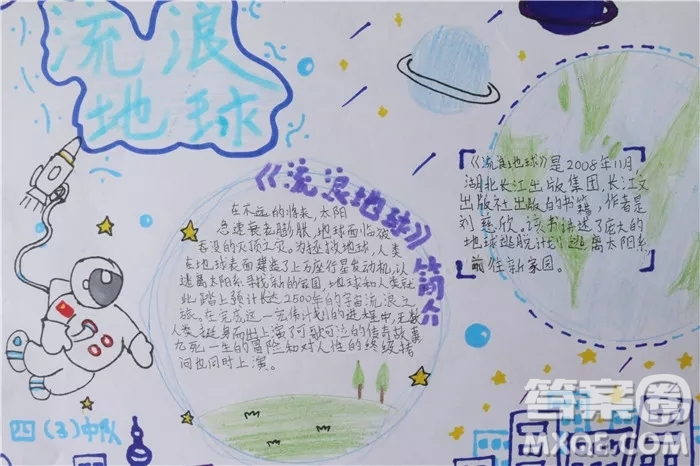 流浪
地球
《流浪地球》简介
在不远的将来,太阳
急速衰老膨胀,地球面临被
吞没的灭顶之灾。为拯救地球,人类
在地球表面建造了上万座行星发动机,以
逃离太阳系寻找新的家园,地球和人类就
此踏上预计长达2500年的宇宙流浪之
旅。在完成这一宏伟计划的进程中,无数
人类挺身而出上演了可歌可泣的传奇故事
九死一生的冒险和对人性的终级拷
问也同时上演。
《流浪地球》是2008年11月,
湖北长江出版集团,长江文
出版社出版的书籍,作者是
刘慈欣。该书讲述了庞大的
地球逃脱计划逃离太阳系
前往新家园。
四(3)中队
答案圈
MXQE.COM